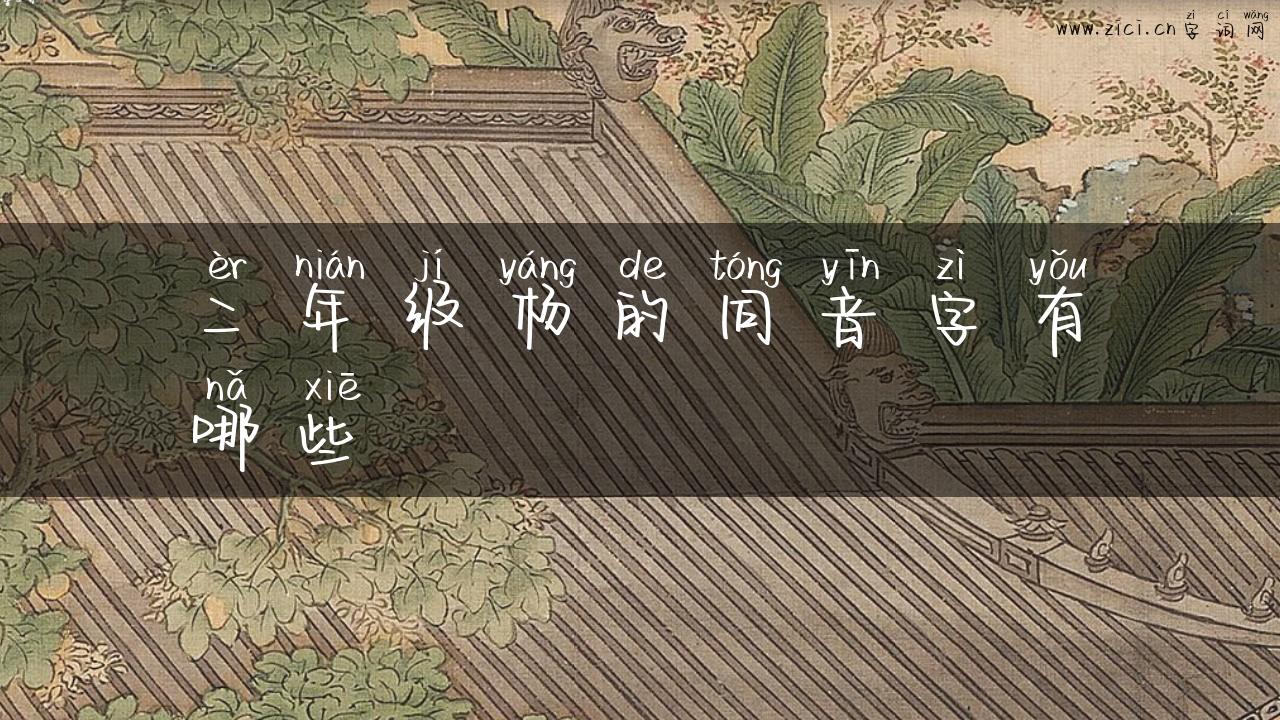 zì cí wǎng
www.zici.cn 字词网
èr nián jí yáng de tóng yīn zì yǒu
二年级杨的同音字有
nǎ xiē
哪些